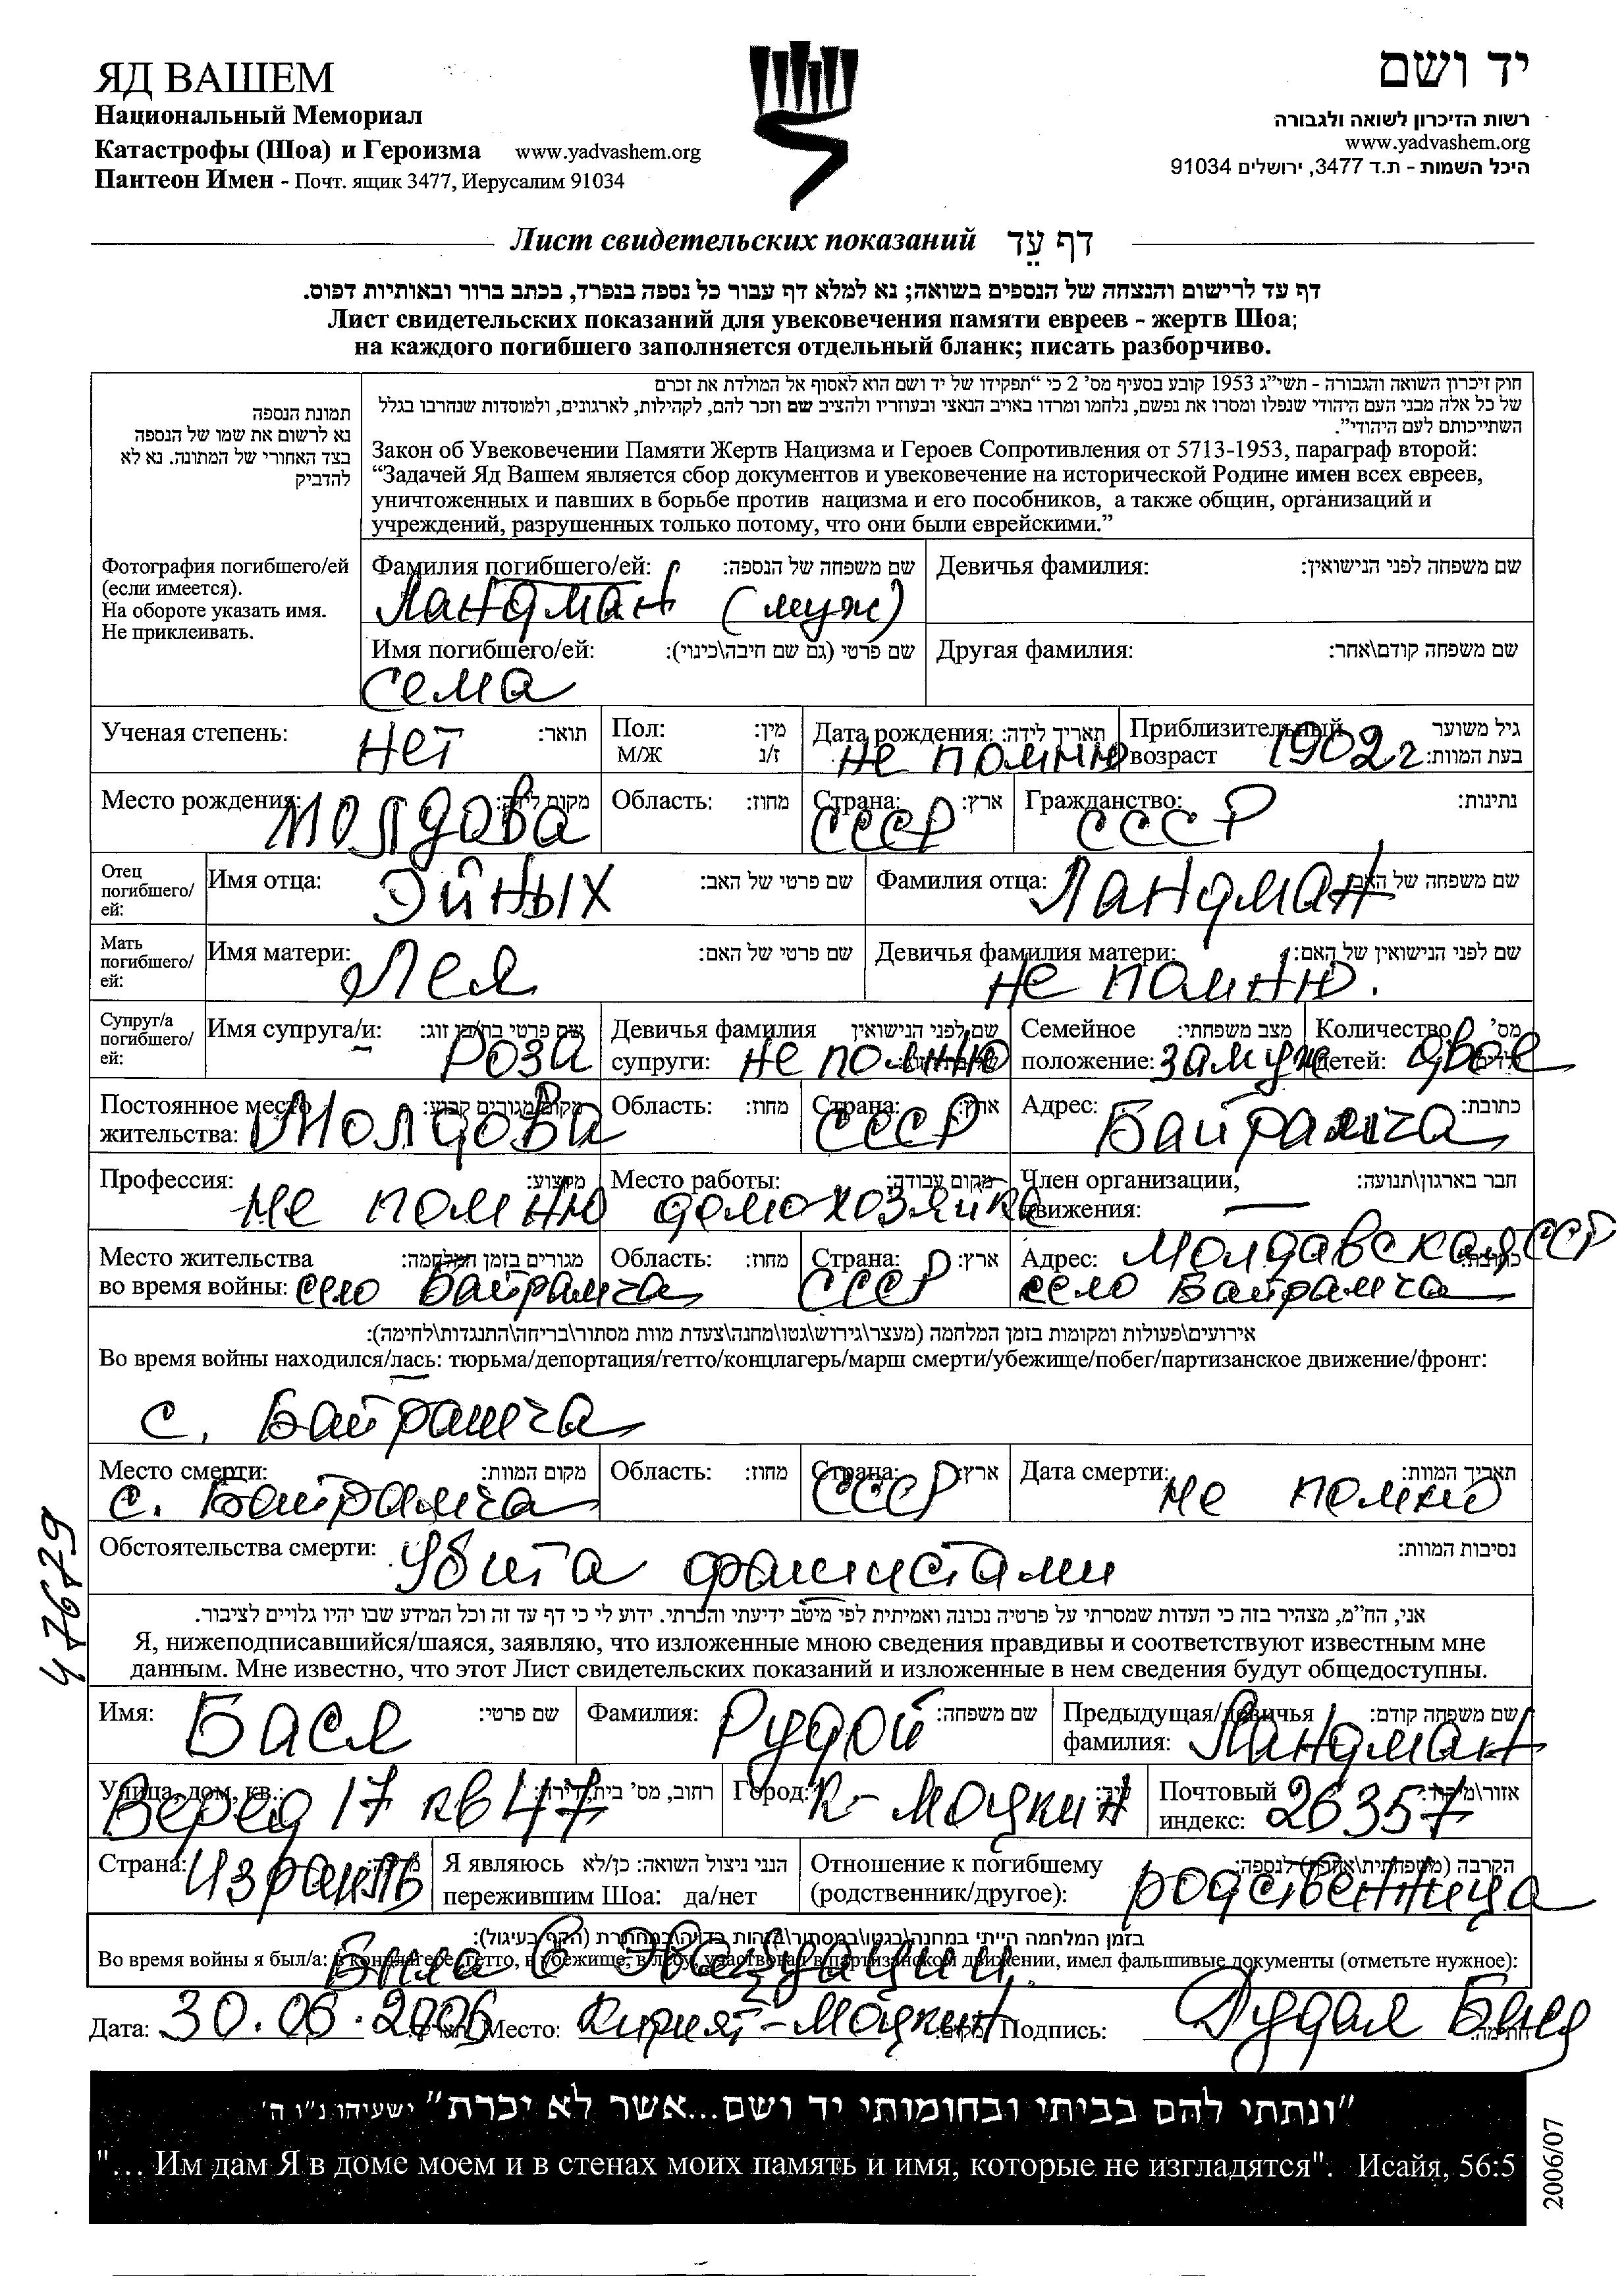 ЯД ВАШЕМ
Национальный Мемориал
Катастрофы (Шоа) и Героизма www.yadvashem.org
Пантеон Имен - Почт. ящик 3477, Иерусалим 91034
יד ושם
רשות הזיכרון לשואה ולגבורה
www.yadvashem.org
היכל השמות - ת.ד 3477, ירושלים 91034
Лист свидетельских показаний דף עֵד
דף עד לרישום והנצחה של הנספים בשואה; נא למלא דף עבור כל נספה בנפרד, בכתב ברור ובאותיות דפוס.
Лист свидетельских показаний для увековечения памяти евреев - жертв Шоа;
на каждого погибшего заполняется отдельный бланк; писать разборчиво.
תמונת הנספה
נא לרשום את שמו של הנספה
בצד האחורי של המתונה. נא לא
להדביק
Фотография погибшего/ей
(если имеется).
На обороте указать имя.
Не приклеивать.
חוק זיכרון השואה והגבורה - תשי״ג 1953 קובע בסעיף מס׳ 2 כי "תפקידו של יד ושם הוא לאסוף אל המולדת את זכרם
של כל אלה מבני העם היהודי שנפלו ומסרו את נפשם, נלחמו ומרדו באויב הנאצי ובעוזריו ולהציב שם וזכר להם, לקהילות, לארגונים, ולמוסדות שנחרבו בגלל
השתייכותם לעם היהודי".
Закон об Увековечении Памяти Жертв Нацизма и Героев Сопротивления от 5713-1953, параграф второй:
“Задачей Яд Вашем является сбор документов и увековечение на исторической Родине имен всех евреев,
уничтоженных и павших в борьбе против нацизма и его пособников, а также общин, организаций и
учреждений, разрушенных только потому, что они были еврейскими.”
Фамилия погибшего/ей: שם משפחה של הנספה: Девичья фамилия: שם משפחה לפני הנישואין:
Ландман (муж)
Имя погибшего/ей: שם פרטי (גם שם חיבה\כינוי): Другая фамилия: שם משפחה קודם\אחר:
Сема
Ученая степень: нет תואר: Пол: מין: Дата рождения: תאריך לידה: Приблизительный גיל משוער
М/Ж ז/נ не помню возраст 1902 г בעת המוות:
Место рождения: Молдова Область: מחוז: Страна: ארץ: СССР Гражданство: СССР נתינות:
Отец погибшего/ей: Имя отца: Эйных שם פרטי של האב: Фамилия отца: Ландман שם משפחה של האב:
Мать погибшего/ей: Имя матери: Лея שם פרטי של האם: Девичья фамилия матери: שם לפני הנישואין של האם:
не помню.
Супруг/а погибшего/ей: Имя супруга/и: Роза Девичья фамилия שם לפני הנישואין Семейное מצב משפחתי: Количество מס׳
супруги: не помню положение: замуж детей: двое
Постоянное место מקום מגורים קבוע: Область: מחוז: Страна: ארץ: Адрес: כתובת:
жительства: Молдова СССР Байрамча
Профессия: מקצוע: Место работы: מקום עבודה: Член организации, חבר בארגון\תנועה:
не помню домохозяйка движения: —
Место жительства מגורים בזמן המלחמה: Область: מחוז: Страна: ארץ: Адрес: Молдавская ССР
во время войны: село Байрамча СССР село Байрамча
אירועים\פעולות ומקומות בזמן המלחמה (מעצר\גירוש\גטו\מחנה\צעדת מוות מסתור\בריחה\התנגדות\לחימה):
Во время войны находился/лась: тюрьма/депортация/гетто/концлагерь/марш смерти/убежище/побег/партизанское движение/фронт:
с. Байрамча
Место смерти: מקום המוות: Область: מחוז: Страна: ארץ: Дата смерти: תאריך המוות:
с. Байрамча СССР не помню
Обстоятельства смерти: Убита фашистами נסיבות המוות:
אני, הח״מ, מצהיר בזה כי העדות שמסרתי על פרטיה נכונה ואמיתית לפי מיטב ידיעתי והכרתי. ידוע לי כי דף עד זה וכל המידע שבו יהיו גלויים לציבור.
Я, нижеподписавшийся/шаяся, заявляю, что изложенные мною сведения правдивы и соответствуют известным мне
данным. Мне известно, что этот Лист свидетельских показаний и изложенные в нем сведения будут общедоступны.
Имя: Бася שם פרטי: Фамилия: Рудой שם משפחה: Предыдущая/девичья שם משפחה קודם:
фамилия: Ландман
Улица, дом, кв.: Веред 17 кв 47 רחוב, מס׳ בית, Город: К-Моцкин Почтовый
индекс: 26357
Страна: Израиль Я являюсь הנני ניצול השואה: כן/לא Отношение к погибшему הקרבה (משפחתית\אחרת) לנספה:
пережившим Шоа: да/нет (родственник/другое): родственница
בזמן המלחמה הייתי במחנה\בגטו\במסתור\ (הקף בעיגול):
Во время войны я был/а: в концлагере, гетто, в убежище, в лесу, участвовал в партизанском движении, имел фальшивые документы (отметьте нужное):
Была в Эвакуации
Дата: 30.06.2006 Место: Кирият-Моцкин Подпись:
47679
"ונתתי להם בביתי ובחומותי יד ושם...אשר לא יכרת" ישעיהו נ״ו ה׳
"… Им дам Я в доме моем и в стенах моих память и имя, которые не изгладятся". Исайя, 56:5
2006/07